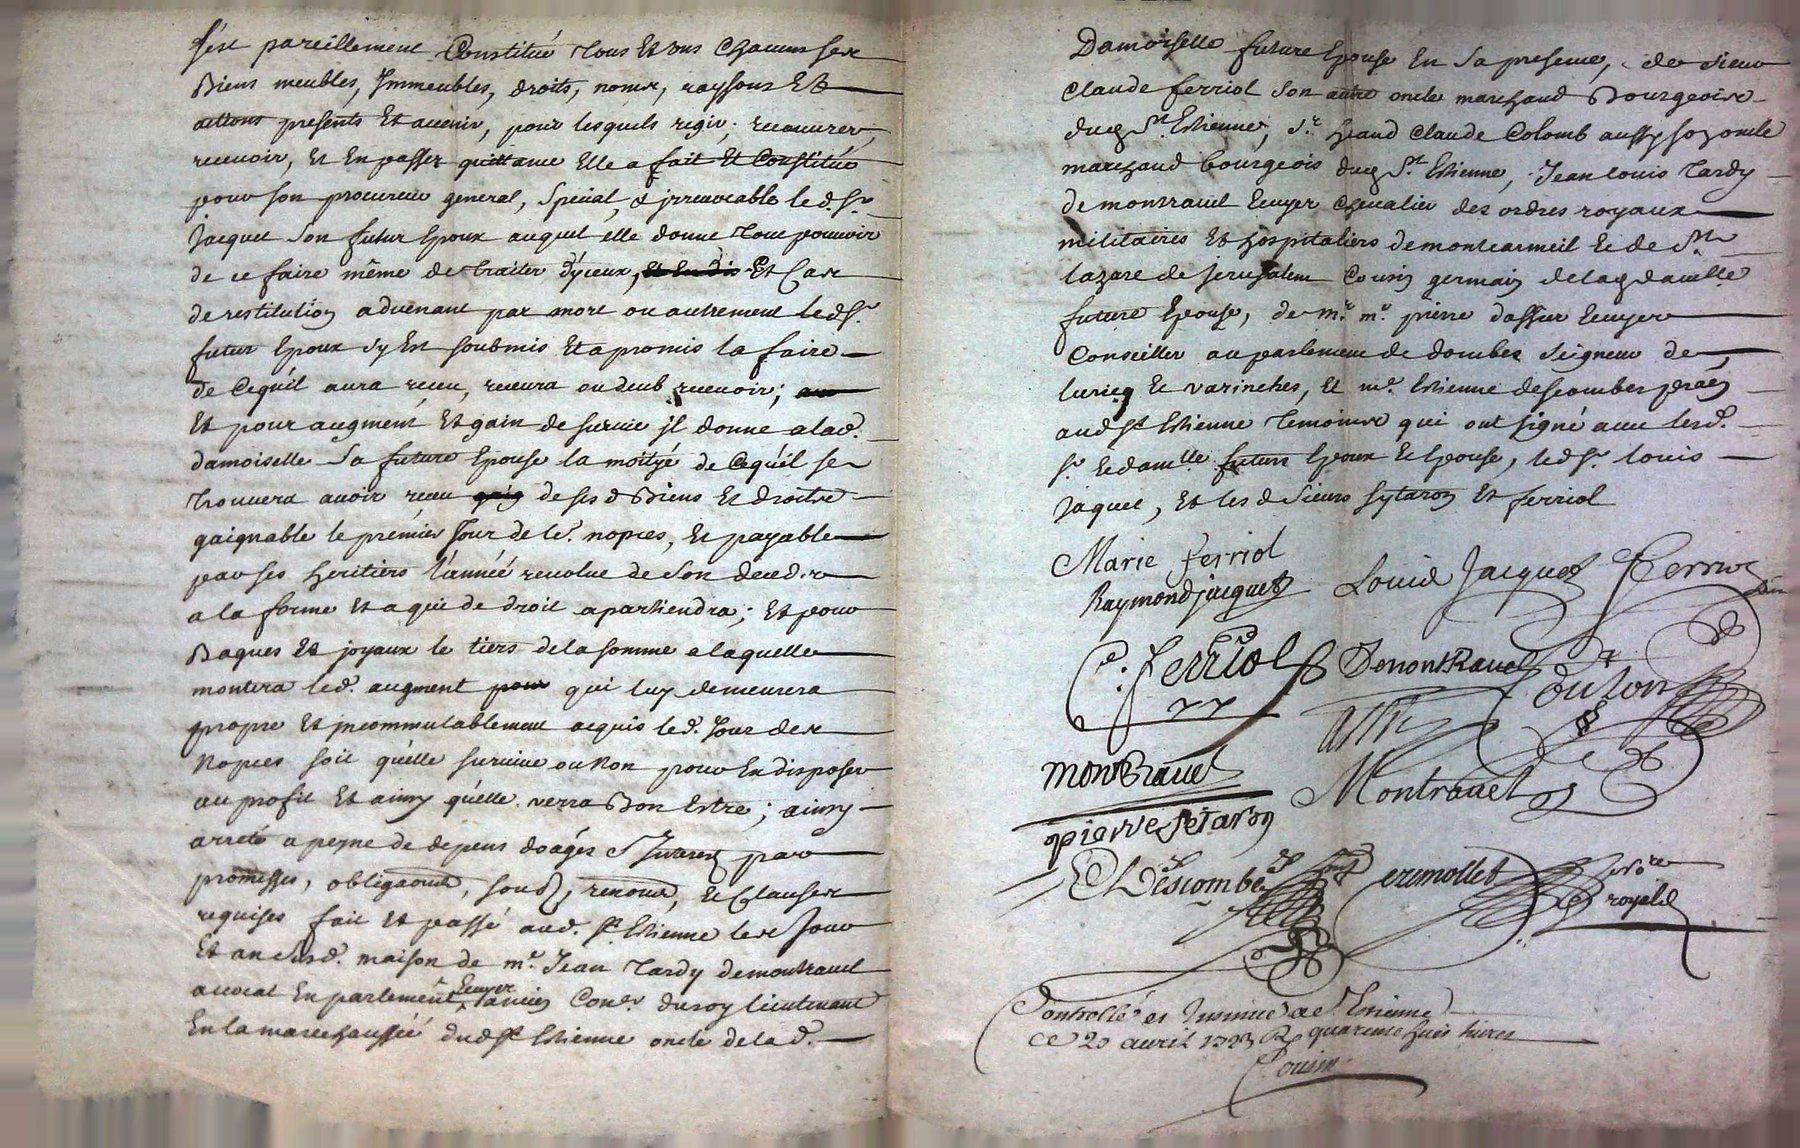 s'est pareillement Constitué tous Et uns Chacuns ses
Biens meubles, Immeubles, droits, noms, rayssons Et
actions presents Et avenir, pour lesquels regir, recouvrer,
recevoir, Et En passer quittance Elle a fait Et Constitué
pour son procureur general, special, & jrrevocable le d. Sr.
Jacquet son futur Epoux auquel elle donne tout pouvoir
de ce faire même de traiter d'yceux, Et Cas
de restitution advenant par mort ou autrement led. Sr.
futur Epoux s'y Est soubmis Et a promis la faire
de Cequ'il aura receu, recevra ou deub recevoir;
Et pour augment Et gain de survie jl donne a lad.
damoiselle Sa future Epouse la moityé de Cequ'il se
trouvera avoir receu de ses d Biens Et droits
gaignable le premier Jour de le. nopces, Et payable
par ses heritiers l'année revolue de son deced
a la forme Et a qui de droit apartiendra; Et pour
Bagues Et joyaux le tiers de la somme a laquelle
montera led. augment qui luy demeurera
propre Et jncommutablement acquis led. Jour des
Nopces soit qu'elle survive ou Non pour En disposer
au profit Et ainsy qu'elle verra Bon Estre; ainsy
arreté a peyne de depens
promesses, obligaons, renons, Et Clauses
requises fait Et passé aud. St. Estienne les Jour
Et an Susd. maison de mr. Jean Tardy demontravel
avocat En parlement, Ecuyer ancien Coner. du roy lieutenant
En la marechaussée dud St Estienne oncle de la d.
Damoiselle future Epouse En Sa presence, de sieur
Claude ferriol Son autre oncle marchand Bourgeois
dud St. Estienne, Sr. Claude Colomb aussy son oncle
marchand bourgeois dud St. Estienne, Jean louis Tardy
de montravel Ecuyer chevalier des ordres royaux
militaires Et hospitaliers de montcarmeil Et de St
lazare de Jerusalem Cousin germain de lad damlle
future Epouse, de mr. mr. pierre dassur Ecuyer
Conseiller au parlement de dombes Seigneur de
luricq Et varinches, Et mr. Estienne descombes
aud St Estienne temoins qui ont signé avec lesd.
Sr. Et damlle. futurs Epoux Et Epouse, led Sr. louis
Jaquet, Et les d Sieurs Sytaron Et ferriol
Marie ferriol
Raymond jacquet Louis Jacquet Ferriol
C. Ferriol Demontravel
montravel Montravel
pierre setaron
Descombes eremollet Nore
royal
Controllé et Insinué a St. Etienne
Ce 29 avril 1723 R quarante huit livres
Cousin